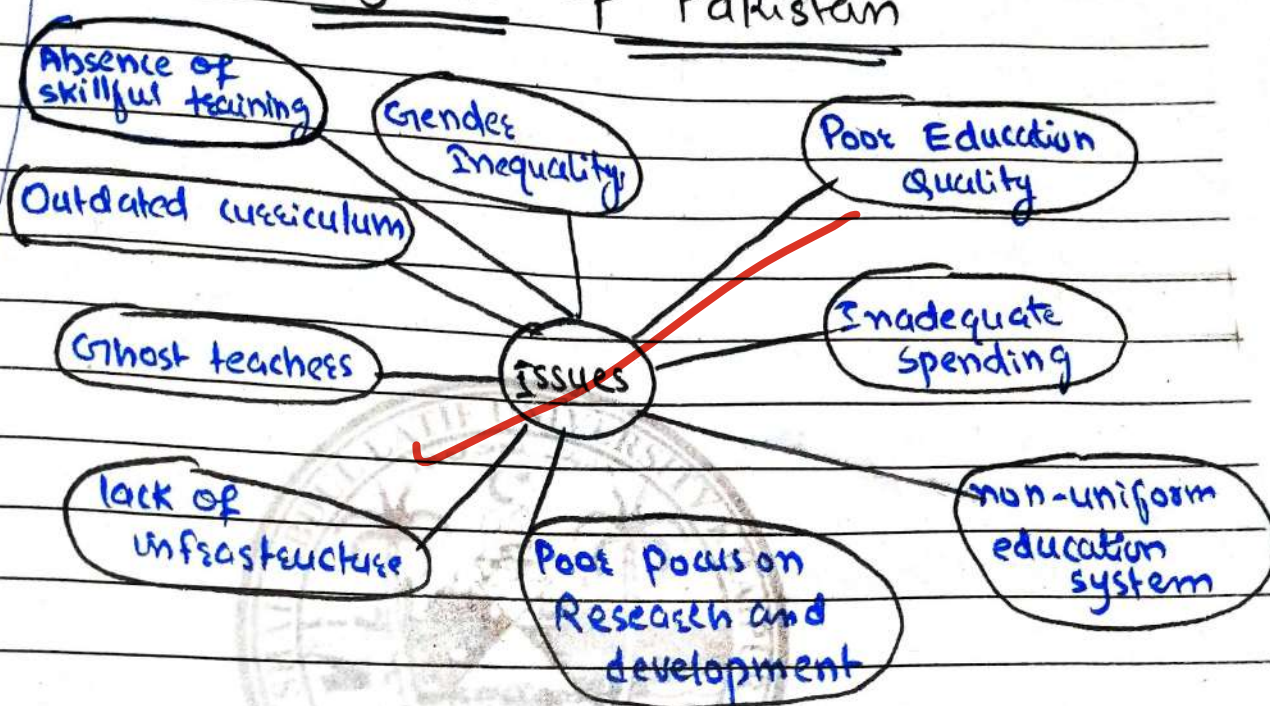 Pakistan
Absence of
skillful training
Gender
Inequality
Poor Education
Quality
Outdated curriculum
Inadequate
spending
Ghost teachers
Issues
lack of
infrastructure
Poor Focus on
Research and
development
non-uniform
education
system